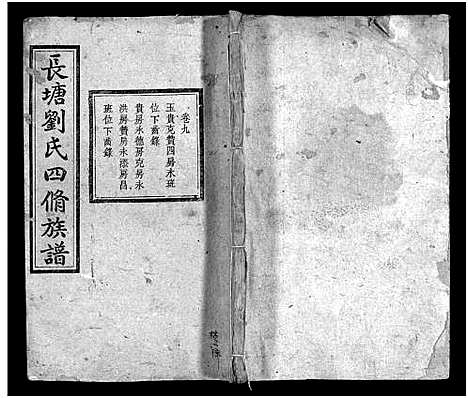 長塘劉氏四脩族譜
卷九
玉貴克贊四房永班
位下齒錄
貴房永德房克房永
洪房贊房永添房昌
班位下齒錄